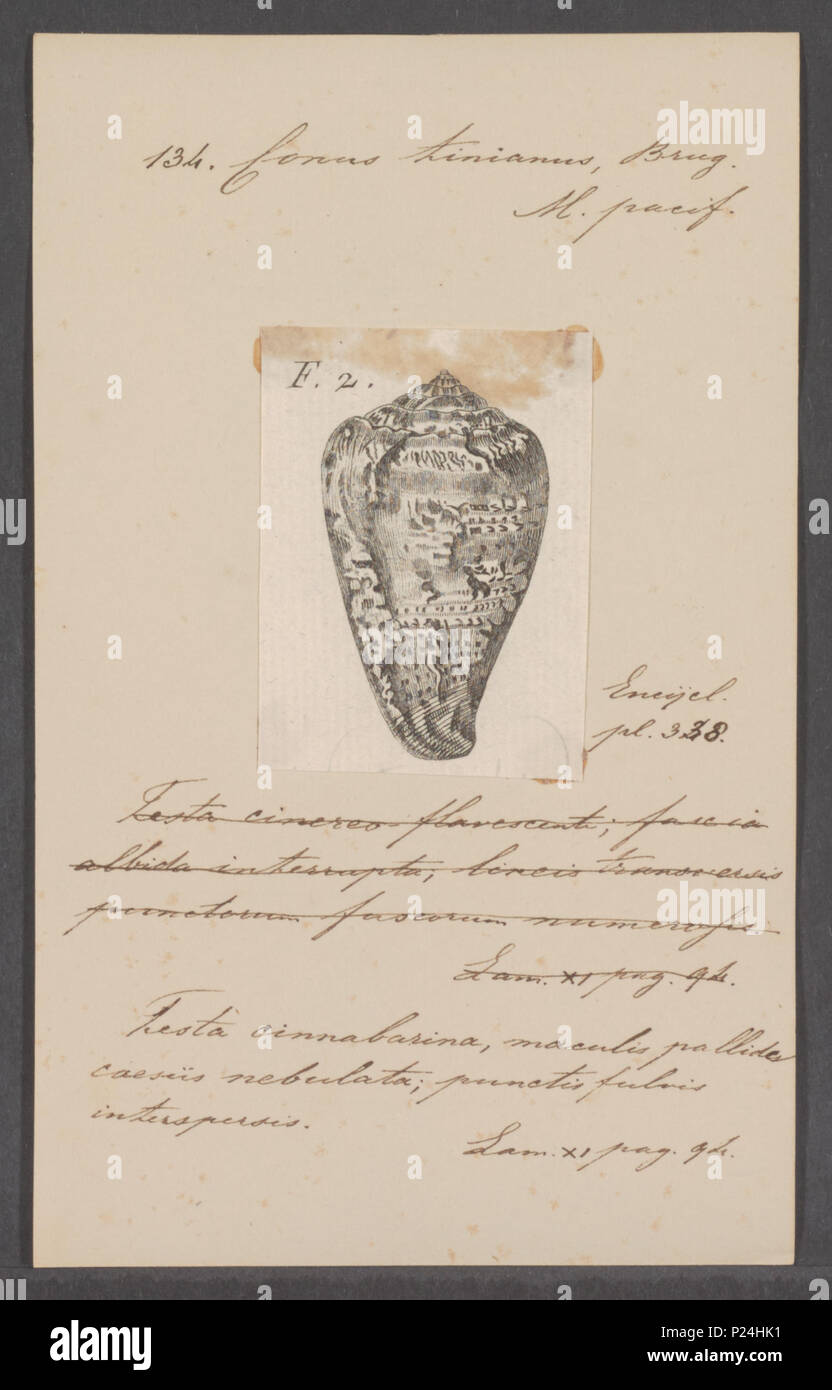 134. Conus tinianus, Brug.
M. pacif.
F. 2.
Encijcl.
pl. 338.
Testa cinereo-flavescente; fascia
albida interrupta, lineis transversis
punctorum fuscorum numerosis
Lam. XI pag. 94.
Testa cinnabarina, maculis pallide
caesiis nebulata; punctis fulvis
interspersis.
Lam. XI pag. 94.
alamy
Image ID: P24HK1
www.alamy.com